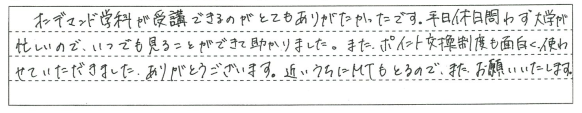 オンデマンド学科が受講できるのがとてもありがたかったです。平日休日問わず大学が
忙しいので、いつでも見ることができて助かりました。また、ポイント交換制度も面白く、使わ
せていただきました。ありがとうございます。近いうちにMTもとるので、また、お願いいたします。